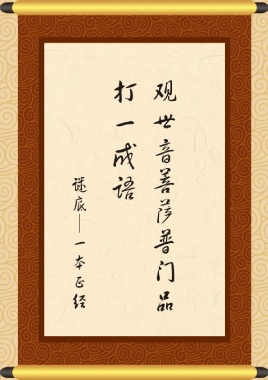 观世音菩萨普门品
打一成语
谜底——一本正经